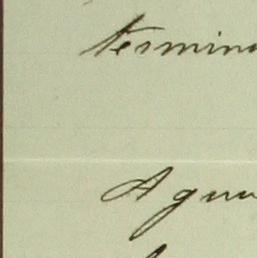 termina
Agua